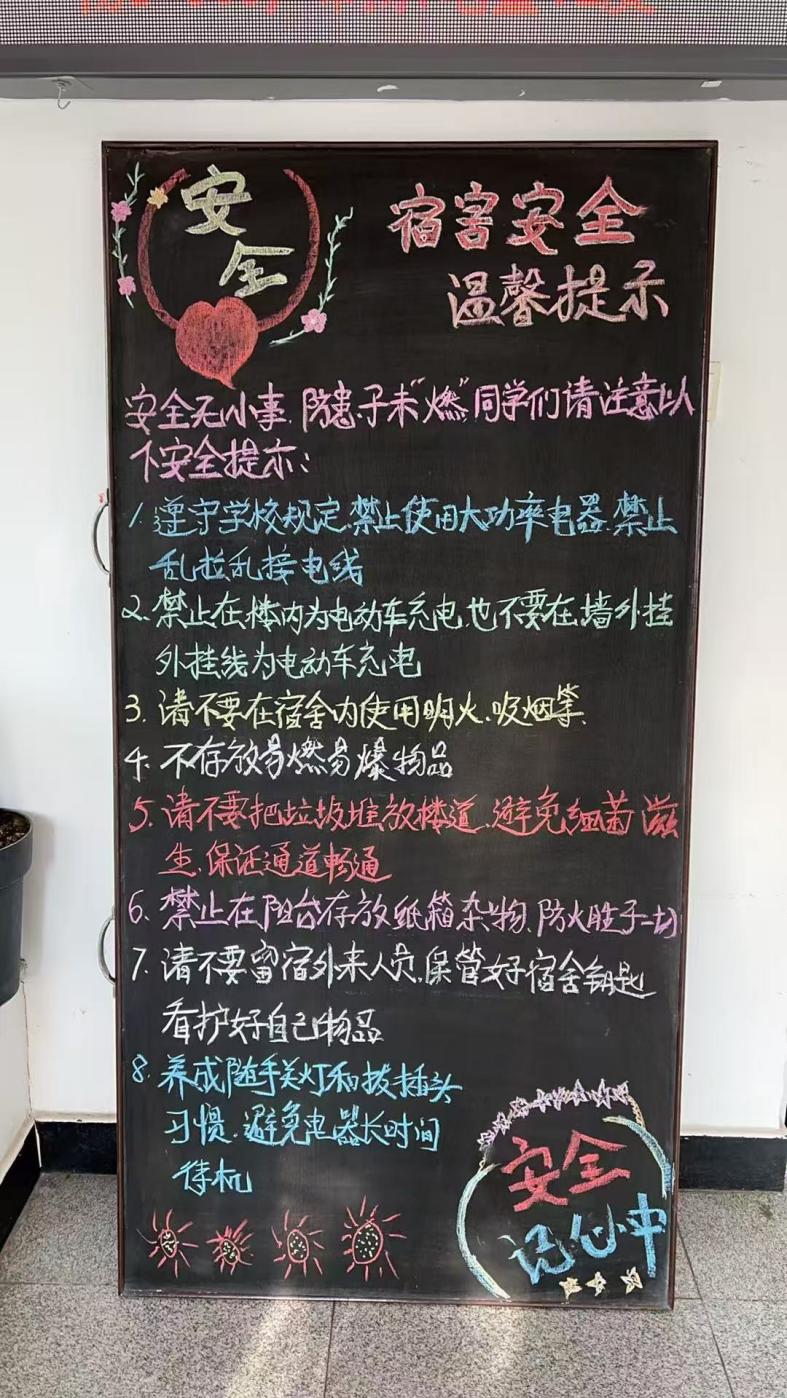 安
全
宿舍安全
温馨提示
安全无小事,防患于未"燃"同学们请注意以
下安全提示:
1.遵守学校规定.禁止使用大功率电器.禁止
乱拉乱接电线
2.禁止在楼内为电动车充电.也不要在墙外挂
外挂线为电动车充电
3.请不要在宿舍内使用明火.吸烟等.
4.不存放易燃易爆物品
5.请不要把垃圾堆放楼道.避免细菌滋
生.保证通道畅通
6.禁止在阳台存放纸箱杂物.防火胜于一切
7.请不要留宿外来人员.保管好宿舍钥匙
看护好自己物品
8.养成随手关灯和拔插头
习惯.避免电器长时间
待机
安全
记心中